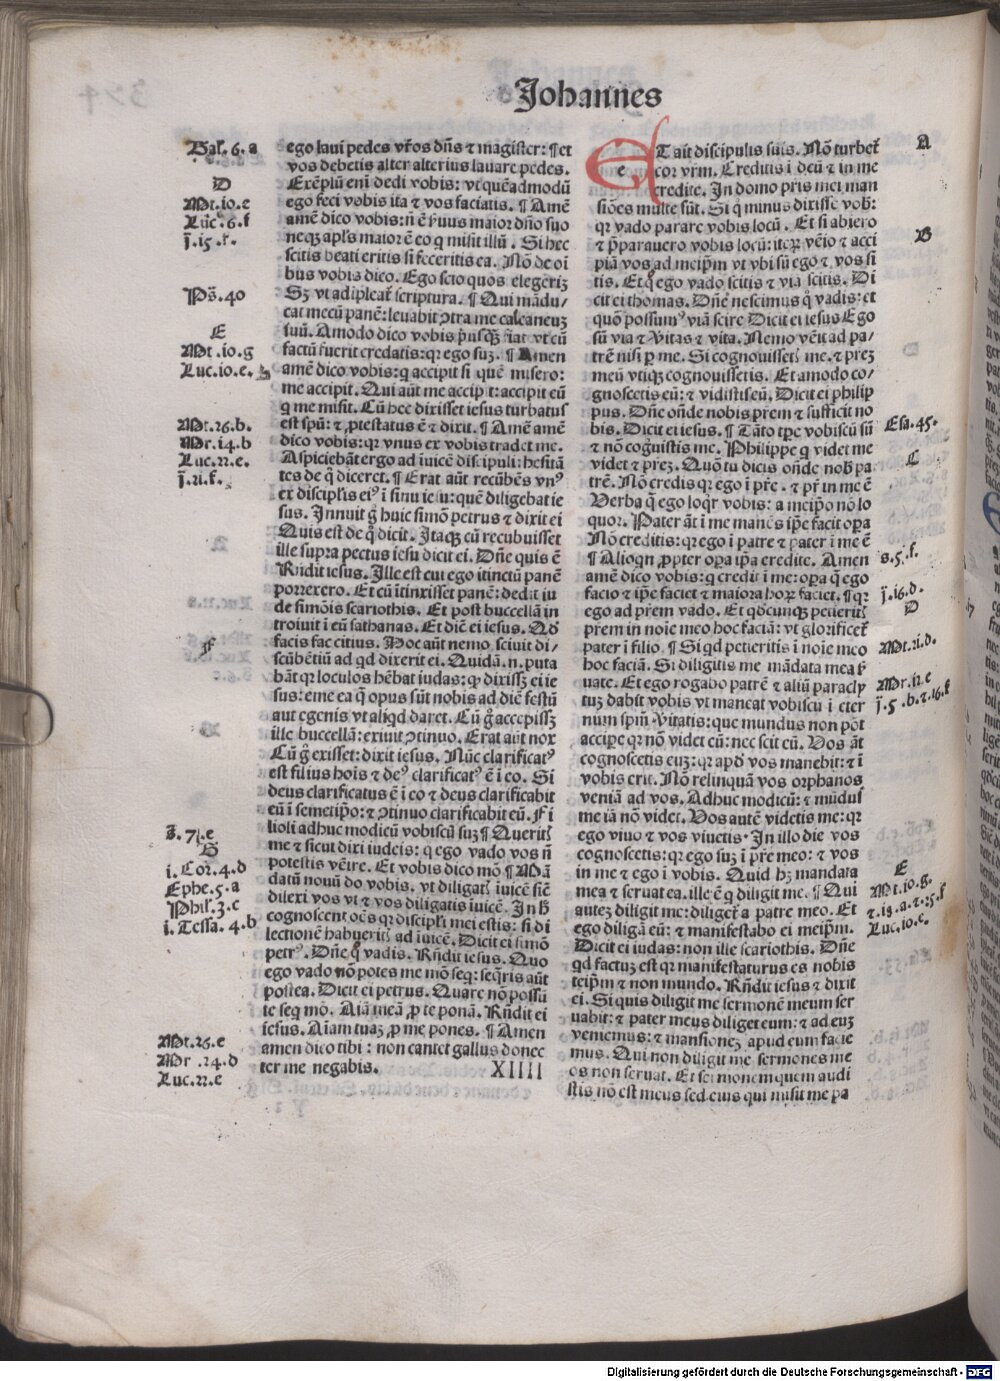 Johannes
Gal. 6. a
D
Mt. io. e
Luc. 6. f
j. i5. f.
Ps. 40
E
Mt. io. g
Luc. io. e.
Mt. 26. b.
Mr. i4. b
Luc. 22. e.
j. 2i. f.
F
G
i. Cor. 4. d
Ephe. 5. a
Phil. 3. c
i. Tessa. 4. b
Mt. 26. e
Mr. 24. d
Luc. 22. e
ego laui pedes vr̃os dñs ⁊ magister: ¶ et
vos debetis alter alterius lauare pedes.
Exẽplũ eni dedi vobis: vt quẽadmodũ
ego feci vobis ita ⁊ vos faciatis. ¶ Amẽ
amẽ dico vobis: nõ ẽ ẜuus maior dño suo
neqꝫ apl̃s maior ẽ eo q misit illũ. Si hec
scitis beati eritis si feceritis ea. Nõ de oĩ
bus vobis dico. Ego scio quos elegeriꝫ
Sꝫ vt adipleat̃ scriptura. ¶ Qui mãdu/
cat mecũ panẽ: leuabit ↄtra me calcaneuꝫ
suũ. Amodo dico vobis p̃usqꝫ̃ fiat vt cũ
factũ fuerit credatis: qꝛ ego suꝫ. ¶ Amen
amẽ dico vobis: q accipit si quẽ misero:
me accipit. Qui aũt me accipit: accipit eũ
q me misit. Cũ hec dixisset iesus turbatus
est spũ: ⁊ ꝓtestatus ẽ ⁊ dixit. ¶ Amẽ amẽ
dico vobis: qꝛ vnus ex vobis tradet me.
Aspiciebãt ergo ad iuicẽ discipuli: hesitã
tes de q̃ diceret. ¶ Erat aũt recũbẽs vnꝰ
ex discipl̃is eiꝰ i sinu iesu: quẽ diligebat ie
sus. Innuit g̃ huic simõ petrus ⁊ dixit ei
Quis est de q̃ dicit. Itaqꝫ cũ recubuisset
ille supra pectus iesu dicit ei. Dñe quis ẽ
Rñdit iesus. Ille est cui ego itinctũ panẽ
porrexero. Et cũ itinxisset panẽ: dedit iu
de simõis scariothis. Et post buccellã in
troiuit i eũ sathanas. Et dicẽ ei iesus. Qd
facis fac citius. Hoc aũt nemo sciuit di/
scũbẽtiũ ad qd dixerit ei. Quidã. n. puta
bãt qꝛ loculos hẽbat iudas: qꝛ dixissꝫ ei ie
sus: eme ea q̃ opus sũt nobis ad diẽ festũ
aut egenis vt aliqd daret. Cũ g̃ accepissꝫ
ille buccellã: exiuit ↄtinuo. Erat aũt nox
Cũ g̃ exisset: dixit iesus. Nũc clarificatꝰ
est filius hois ⁊ deꝰ clarificatꝰ ẽ i eo. Si
deus clarificatus ẽ i eo ⁊ deus clarificabit
eũ i semetip̃o: ⁊ ↄtinuo clarificabit eũ. Fi
lioli adhuc modicũ vobiscũ suꝫ ¶ Querit̃
me ⁊ sicut dixi iudeis: q ego vado vos ñ
potestis vẽire. Et vobis dico mõ ¶ Mã
datũ nouũ do vobis. vt diligat̃ iuicẽ sicẽ
dilexi vos vt ⁊ vos diligatis iuicẽ. In h̃
cognoscent oẽs qꝛ discipl̃i mei estis: si di
lectionẽ habuerit̃ ad iuicẽ. Dicit ei simõ
petrꝰ. Dñe q̃ vadis. Rñdit iesus. Quo
ego vado nõ potes me mõ seq̃: seq̃ris aũt
postea. Dicit ei petrus. Quare nõ possũ
te seq̃ mõ. Aiã meã ꝓ te ponã. Rñdit ei
iesus. Aĩam tuaꝫ ꝓ me pones. ¶ Amen
amen dico tibi: non cantet gallus donec
ter me negabis. XIIII
ET ait discipulis suis. Nõ turbet̃
cor vr̃m. Creditis i deũ ⁊ in me
credite. In domo pr̃is mei man
siões multe sũt. Si q̃ minus dixissẽ vob̃:
qꝛ vado parare vobis locũ. Et si abiero
⁊ p̃parauero vobis locũ: iteꝝ vẽio ⁊ acci
piã vos ad meip̃m vt vbi sũ ego ⁊ vos si
tis. Et q̃ ego vado scitis ⁊ viã scitis. Di
cit ei thomas. Dñe nescimus q̃ vadis: et
quõ possumꝰ viã scire Dicit ei iesus Ego
sũ via ⁊ v̾itas ⁊ vita. Nemo vẽit ad pa/
trẽ nisi ꝑ me. Si cognouisset̃ me. ⁊ pr̃eꝫ
meũ vtiqꝫ cognouissetis. Et amodo co/
gnoscetis eũ: ⁊ vidistis eũ. Dicit ei philip
pus. Dñe oñde nobis pr̃em ⁊ sufficit no
bis. Dicit ei iesus. ¶ Tãto tpẽ vobiscũ sũ
⁊ nõ cognuistis me. Philippe q videt me
videt ⁊ pr̃eꝫ. Quõ tu dicis oñde nob̃ pa
trẽ. Nõ credis qꝛ ego i pr̃e. ⁊ pr̃ in me ẽ
Verba q̃ ego loqr̃ vobis: a meip̃o nõ lo
quor. Pater ãt i me manẽs ip̃e facit oꝑa
Nõ creditis: qꝛ ego i patre ⁊ pater i me ẽ
¶ Alioqn ꝓpter oꝑa ip̃a credite. Amen
amẽ dico vobis: q credit i me: oꝑa q̃ ego
facio ⁊ ip̃e faciet ⁊ maiora hoꝝ faciet. ¶ qꝛ
ego ad pr̃em vado. Et qd̃cunqꝫ petierit̃
pr̃em in noie meo hoc faciã: vt glorificet̃
pater i filio. ¶ Si qd petieritis i noie meo
hoc faciã. Si diligitis me mãdata mea ẜ
uate. Et ego rogabo patrẽ ⁊ aliũ paracly
tuꝫ dabit vobis vt maneat vobiscũ i eter
num spm̃ v̾itatis: que mundus non põt
accipe qꝛ nõ videt eũ: nec scit eũ. Vos ãt
cognoscetis euꝫ: qꝛ apd vos manebit: ⁊ i
vobis erit. Nõ relinquã vos orphanos
veniã ad vos. Adhuc modicũ: ⁊ mũdus
me iã nõ videt. Vos autẽ videtis me: qꝛ
ego viuo ⁊ vos viuetis. In illo die vos
cognoscetis: qꝛ ego suꝫ i pr̃e meo: ⁊ vos
in me ⁊ ego i vobis. Quid hꝫ mandata
mea ⁊ seruat ea. ille ẽ q diligit me. ¶ Qui
auteꝫ diligit me: diliget̃ a patre meo. Et
ego diligã eũ: ⁊ manifestabo ei meip̃m.
Dicit ei iudas: non ille scariothis. Dñe
qd factuꝫ est qꝛ manifestaturus es nobis
teip̃m ⁊ non mundo. Rñdit iesus ⁊ dixit
ei. Si quis diligit me sermonẽ meum ser
uabit: ⁊ pater meus diliget eum: ⁊ ad euꝫ
veniemus: ⁊ mansioneꝫ apud eum facie
mus. Qui non diligit me sermones me
os non seruat. Et sermonem quem audi
stis nõ est meus sed eius qui misit me pa
A
B
Esa. 45.
C
s. 5. f.
j. i6. d.
D
Mt. 2i. d.
Mr. ii. e
j. 5. b. ⁊. i6. f
E
Mt. io. g.
⁊. i9. a. ⁊. 25. f
Luc. io. c.
Digitalisierung gefördert durch die Deutsche Forschungsgemeinschaft - DFG